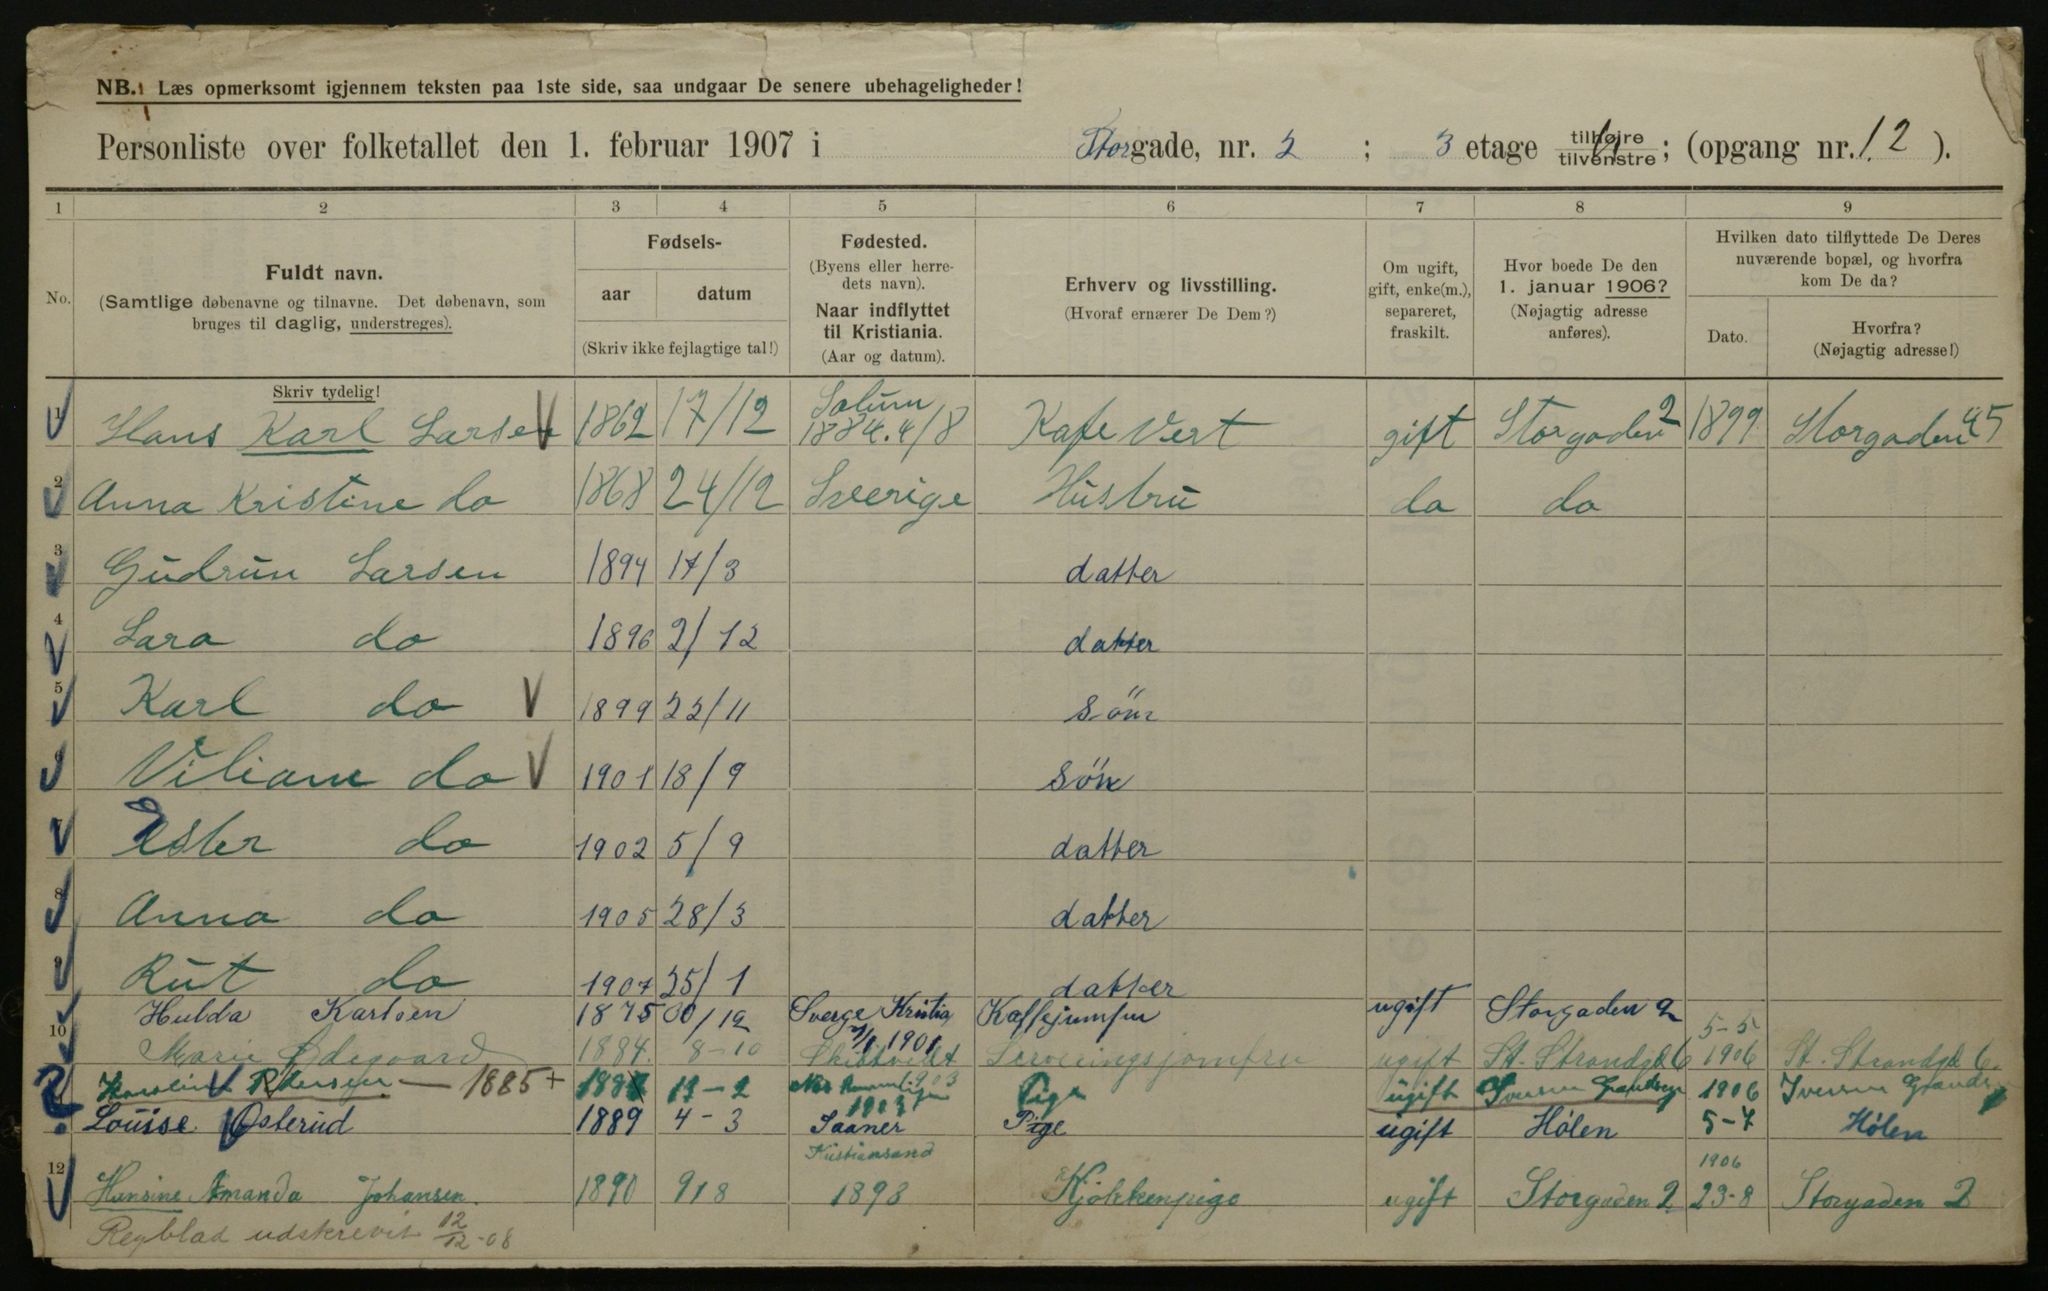 NB. Læs opmerksomt igjennem teksten paa 1ste side, saa undgaar De senere ubehageligheder!
Personliste over folketallet den 1. februar 1907 i Storgade, nr. 2 ; 3 etage tilhøjre tilvenstre ; (opgang nr. 1.2 ).
1 2 3 4 5 6 7 8 9
No.
Fuldt navn.
(Samtlige døbenavne og tilnavne. Det døbenavn, som
bruges til daglig, understreges).
Skriv tydelig!
Fødsels-
aar datum
(Skriv ikke fejlagtige tal!)
Fødested.
(Byens eller herre-
dets navn).
Naar indflyttet
til Kristiania.
(Aar og datum).
Erhverv og livsstilling.
(Hvoraf ernærer De Dem?)
Om ugift,
gift, enke(m.),
separeret,
fraskilt.
Hvor boede De den
1. januar 1906?
(Nøjagtig adresse
anføres).
Hvilken dato tilflyttede De Deres
nuværende bopæl, og hvorfra
kom De da?
Dato.
Hvorfra?
(Nøjagtig adresse!)
1 Hans Karl Larsen 1862 17/12 Solum 1884.4/8 Kafe Vert gift Storgaden 2 1899 Storgaden 45
2 Anna Kristine do 1868 24/12 Sverige Hustru do do
3 Gudrun Larsen 1894 17/3 datter
4 Lara do 1896 2/12 datter
5 Karl do 1899 22/11 søn
6 Viliam do 1901 18/9 søn
7 Ester do 1902 5/9 datter
8 Anna do 1905 28/3 datter
9 Rut do 1907 25/1 datter
Hulda Karlsen 1875 30/12 Sverge Kristia 1901 Kaffejumfru ugift Storgaden 2
10 Marie Ødegaard 1884. 8-10 Skiptvedt Serveringsjomfru ugift St. Strandgd 6 5-5 1906 St. Strandgd 6.
Pedersen — 1885+ 17-2 Pige ugift 1906
Louise Østerud 1889 4-3 Saaner Pige ugift Hølen 5-7 Hølen
12 Hansine Amanda Johansen. 1890 9/8 Kristiansand 1898 Kjøkkenpige ugift Storgaden 2 1906 23-8 Storgaden 2
Regblad udskrevit 12/12-08